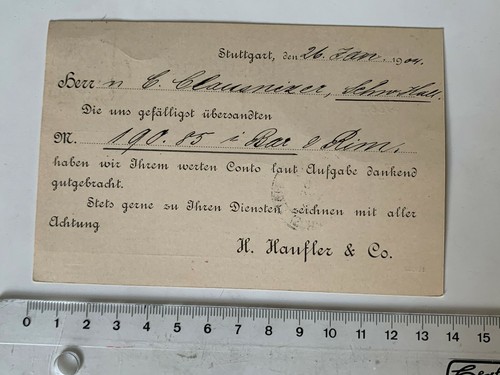 Stuttgart, den 26. Jan. 1904.
Herrn C. Clausnizer, Schw. Hall.
Die uns gefälligst übersandten
M. 190.85 i Bar & Rim.
haben wir Ihrem werten Conto laut Aufgabe dankend
gutgebracht.
Stets gerne zu Ihren Diensten zeichnen mit aller
Achtung
H. Haufler & Co.
0 1 2 3 4 5 6 7 8 9 10 11 12 13 14 15